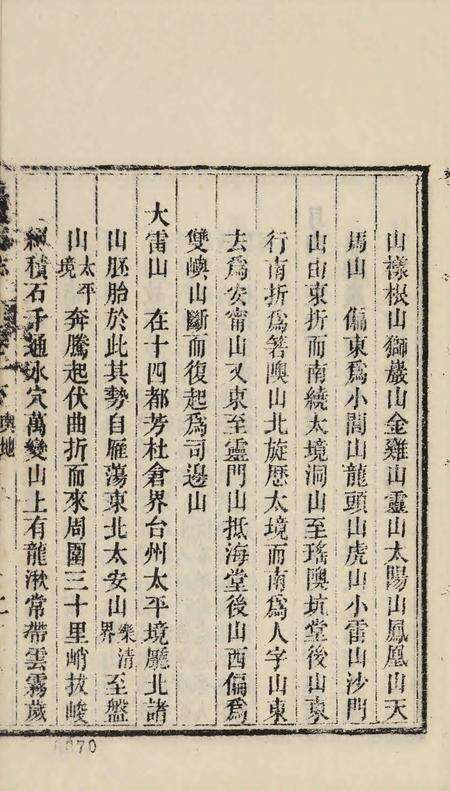 山㨾根山獅巖山金雞山靈山太陽山鳳凰山天
馬山　偏東爲小閭山龍頭山虎山小雷山沙門
山由東折而南繞太境洞山至瑤隩坑堂後山東
行南折爲箬隩山北旋歷太境而南爲人字山東
去爲安甯山又東至靈門山抵海堂後山西偏爲
雙嶼山斷而復起爲司邊山
大雷山　在十四都芳杜倉界台州太平境廳北諸
山胚胎於此其勢自雁蕩東北太安山樂清界至盤
山太平境奔騰起伏曲折而來周圍三十里峭拔峻
積石千通冰穴萬變山上有龍湫常帶雲霧歲
輿地
上
0070